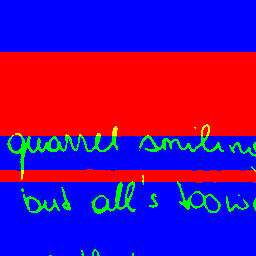 quarrel smiling
but all's too wi